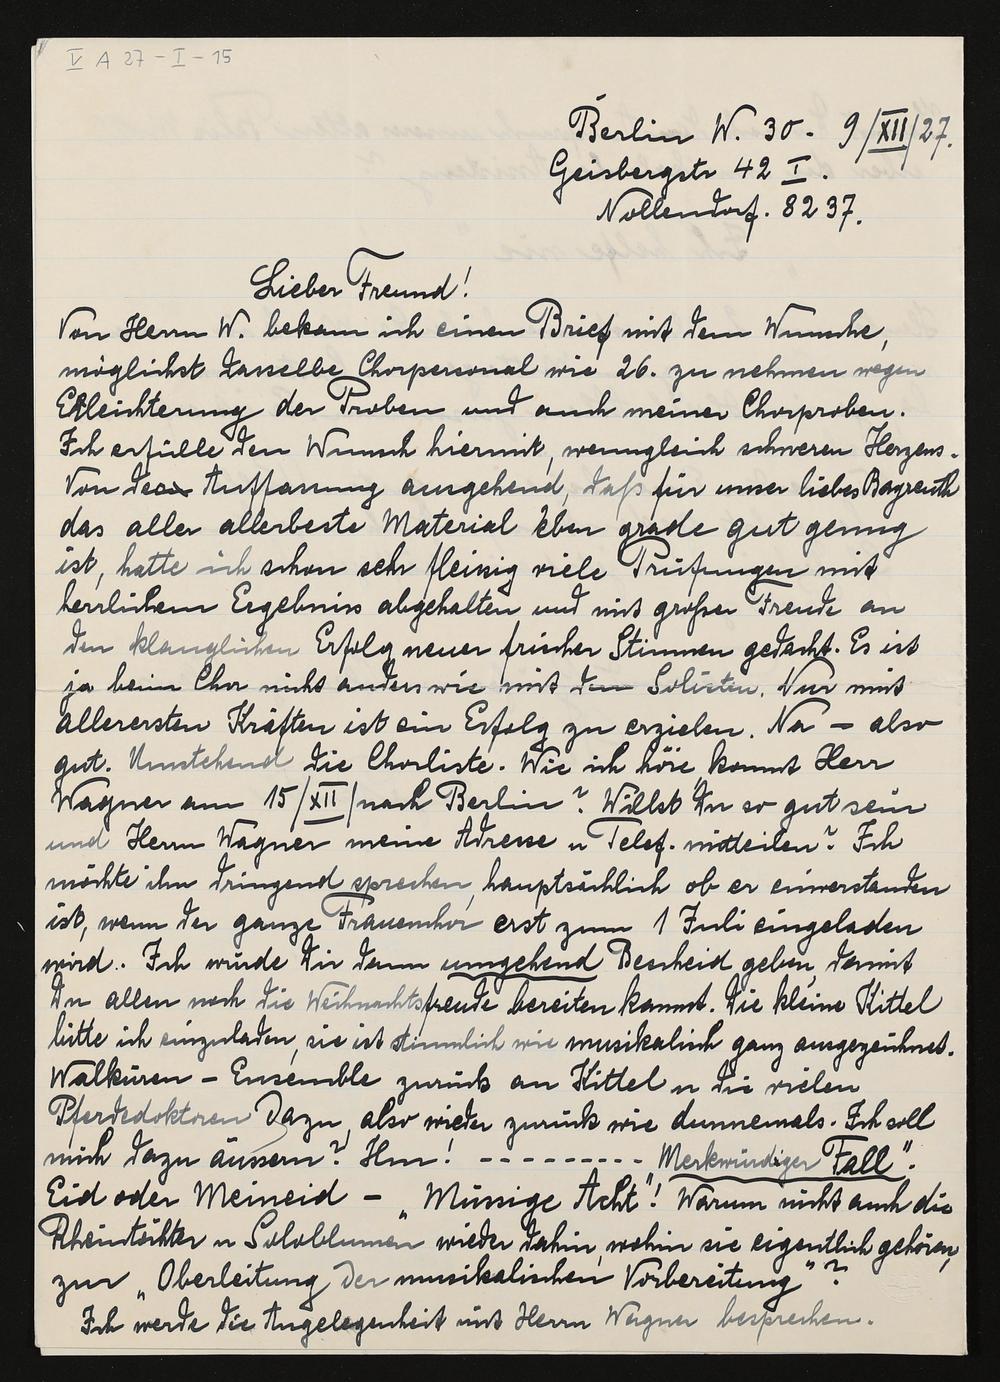 V A 27 - I - 15
Berlin W. 30. 9/XII/27.
Geisbergstr 42 I.
Nollendorf. 8237.
Lieber Freund!
Von Herrn W. bekam ich einen Brief mit dem Wunsche,
möglichst dasselbe Chorpersonal wie 26. zu nehmen wegen
Erleichterung der Proben und auch meiner Chorproben.
Ich erfülle den Wunsch hiermit, wenngleich schweren Herzens.
Von der Auffassung ausgehend, daß für unser liebes Bayreuth
das aller allerbeste Material eben grade gut genug
ist, hatte ich schon sehr fleissig viele Prüfungen mit
herrlichem Ergebniss abgehalten und mit großer Freude an
den klanglichen Erfolg neuer frischer Stimmen gedacht. Es ist
ja beim Chor nicht anders wie mit den Solisten. Nur mit
allerersten Kräften ist ein Erfolg zu erzielen. Na – also
gut. Umstehend die Chorliste. Wie ich höre kommt Herr
Wagner am 15/XII/ nach Berlin? Willst Du so gut sein
und Herrn Wagner meine Adresse u Telef. mitteilen? Ich
möchte ihn dringend sprechen, hauptsächlich ob er einverstanden
ist, wenn der ganze Frauenchor erst zum 1 Juli eingeladen
wird.. Ich würde Dir dann umgehend Bescheid geben, damit
Du allen noch die Weihnachtsfreude bereiten kannst. Die kleine Kittel
bitte ich einzuladen, sie ist stimmlich wie musikalisch ganz ausgezeichnet.
Walküren – Ensemble zurück an Kittel u die vielen
Pferdedoktoren dazu, also wieder zurück wie dunnemals. Ich soll
mich dazu äussern? Hm! - - - - - - - - - „Merkwürdiger Fall".
Eid oder Meineid – „Müssige Acht"! Warum nicht auch die
Rheintöchter u Soloblumen wieder dahin, wohin sie eigentlich gehören,
zur „Oberleitung der musikalischen Vorbereitung"?
Ich werde die Angelegenheit mit Herrn Wagner besprechen.